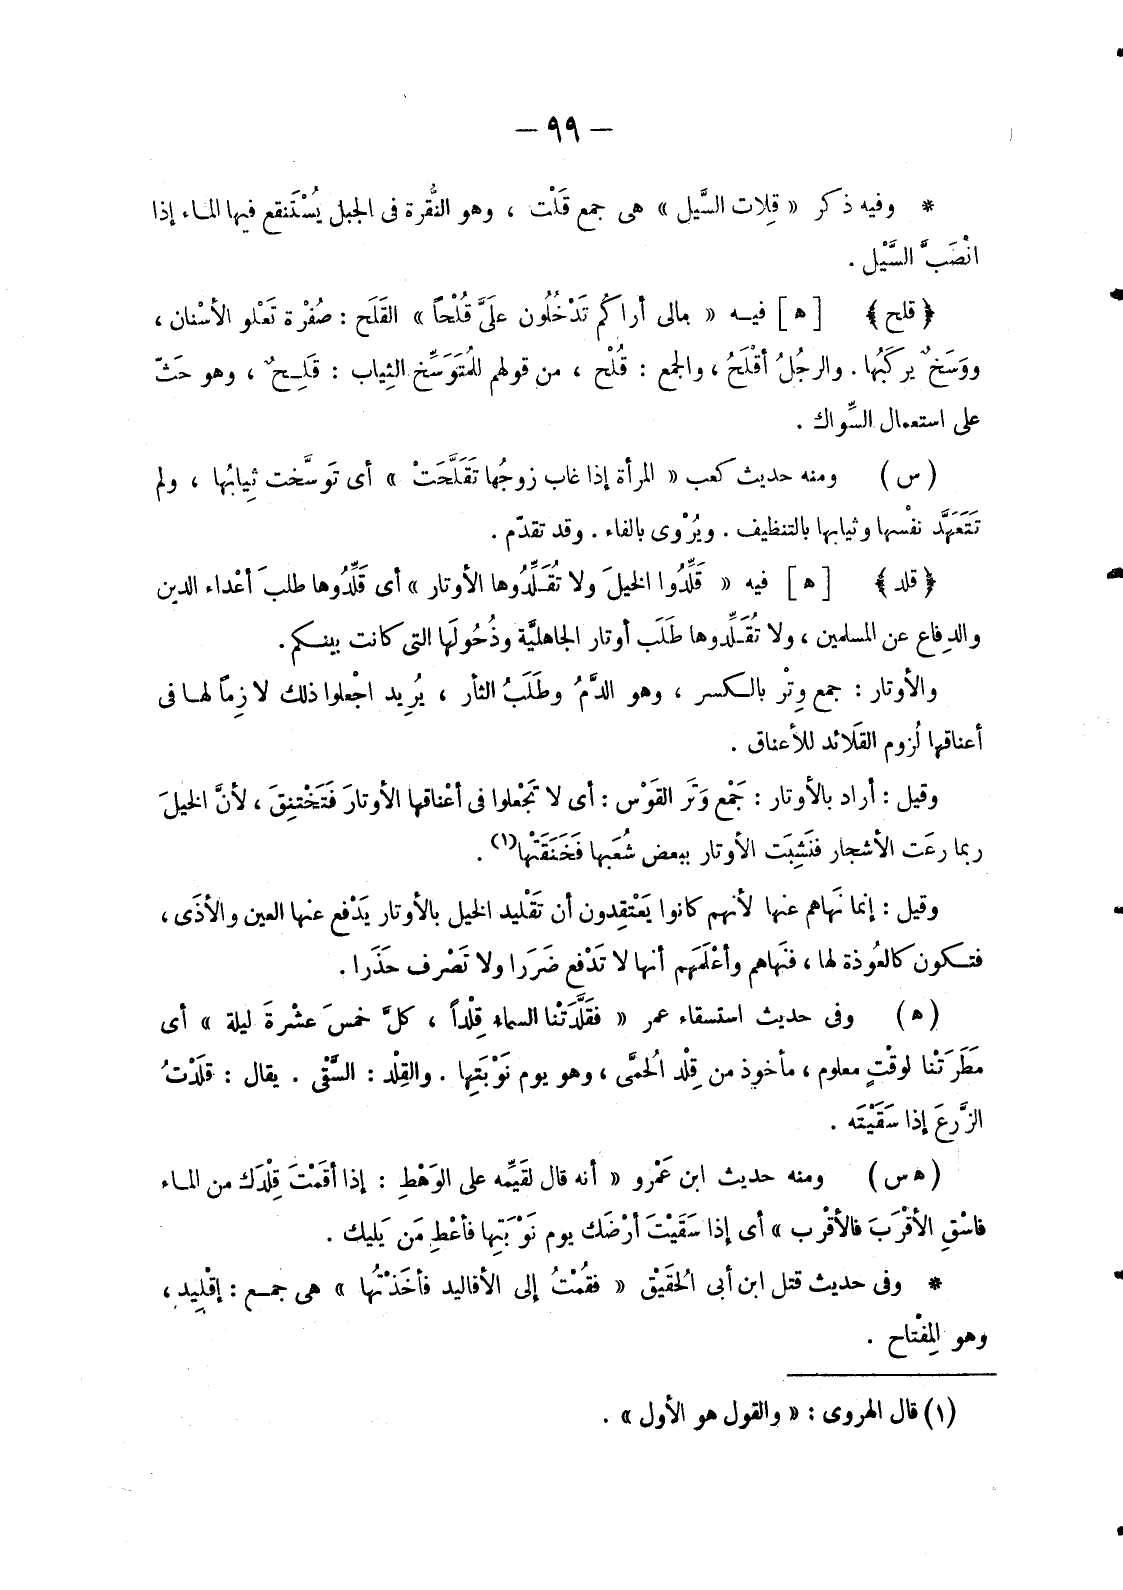 — ٩٩ —
* وفيه ذكر « قِلات السَّيل » هى جمع قَلْت ، وهو النُّقرة فى الجبل يُسْتَنقع فيها الماء إذا
انْصَبَّ السَّيْل .
﴿ قلح ﴾ [ ه ] فيه « مالى أراكُم تَدْخُلُون علَىَّ قُلْحاً » القَلَح : صُفْرة تَعْلو الأسْنان ،
ووَسَخٌ يركَبُها . والرجُلُ أقْلَحُ ، والجمع : قُلْح ، من قولهم للمُتَوَسِّخ الثِياب : قَلِحٌ ، وهو حَثّ
على استعمال السِّواك .
( س ) ومنه حديث كعب « المرأة إذا غاب زوجُها تَقَلَّحَتْ » أى تَوسَّخت ثِيابُها ، ولم
تَتَعَهَّد نفْسها وثيابها بالتنظيف . ويُرْوى بالفاء . وقد تقدّم .
﴿ قلد ﴾ [ ه ] فيه « قَلِّدُوا الخيلَ ولا تُقَلِّدُوها الأوتار » أى قَلِّدُوها طلبَ أعْداء الدين
والدِفاع عن المسلمين ، ولا تُقَلِّدوها طَلَب أوتار الجاهليَّة وذُحُولَها التى كانت بينكم .
والأوتار : جمع وِتْر بالكسر ، وهو الدَّمُ وطَلَبُ الثأر ، يُرِيد اجْعلوا ذلك لازِماً لها فى
أعناقها لُزوم القَلائد للأعناق .
وقيل : أراد بالأوتار : جَمْع وَتَر القَوْس : أى لا تَجْعلوا فى أعْناقها الأوتارَ فَتَخْتنِقَ ، لأنَّ الخيلَ
ربما رعَت الأشجار فنَشِبَت الأوتار ببعض شُعَبها فَخَنَقَتْها(١) .
وقيل : إنما نَهاهم عنها لأنهم كانوا يَعْتقِدون أن تَقْليد الخيل بالأوتار يَدْفع عنها العين والأذَى ،
فتكون كالعُوذة لها ، فنَهاهم وأعْلَمَهم أنها لا تَدْفع ضَرَرا ولا تَصْرف حَذَرا .
( ه ) وفى حديث استسقاء عمر « فقَلَّدَتْنا السماء قِلْداً ، كلَّ خمسَ عشْرةَ ليلة » أى
مَطَرَتْنا لوقْتٍ معلوم ، مأخوذ من قِلْد الحُمَّى ، وهو يوم نَوْبَتِها . والقِلْد : السَّقْى . يقال : قلَدْتُ
الزَّرعَ إذا سَقَيْتَه .
( ه س ) ومنه حديث ابن عَمْرو « أنه قال لقَيِّمه على الوَهْطِ : إذا أقَمْتَ قِلْدَك من الماء
فاسْقِ الأقْرَبَ فالأقْرب » أى إذا سَقَيْتَ أرْضَك يوم نَوْبَتِها فأعْطِ مَن يَليك .
* وفى حديث قتل ابن أبى الحُقَيْق « فقُمْتُ إلى الأقاليد فأخَذْتُها » هى جمع : إقْلِيد ،
وهو المِفْتاح .
(١) قال الهروى : « والقول هو الأول » .